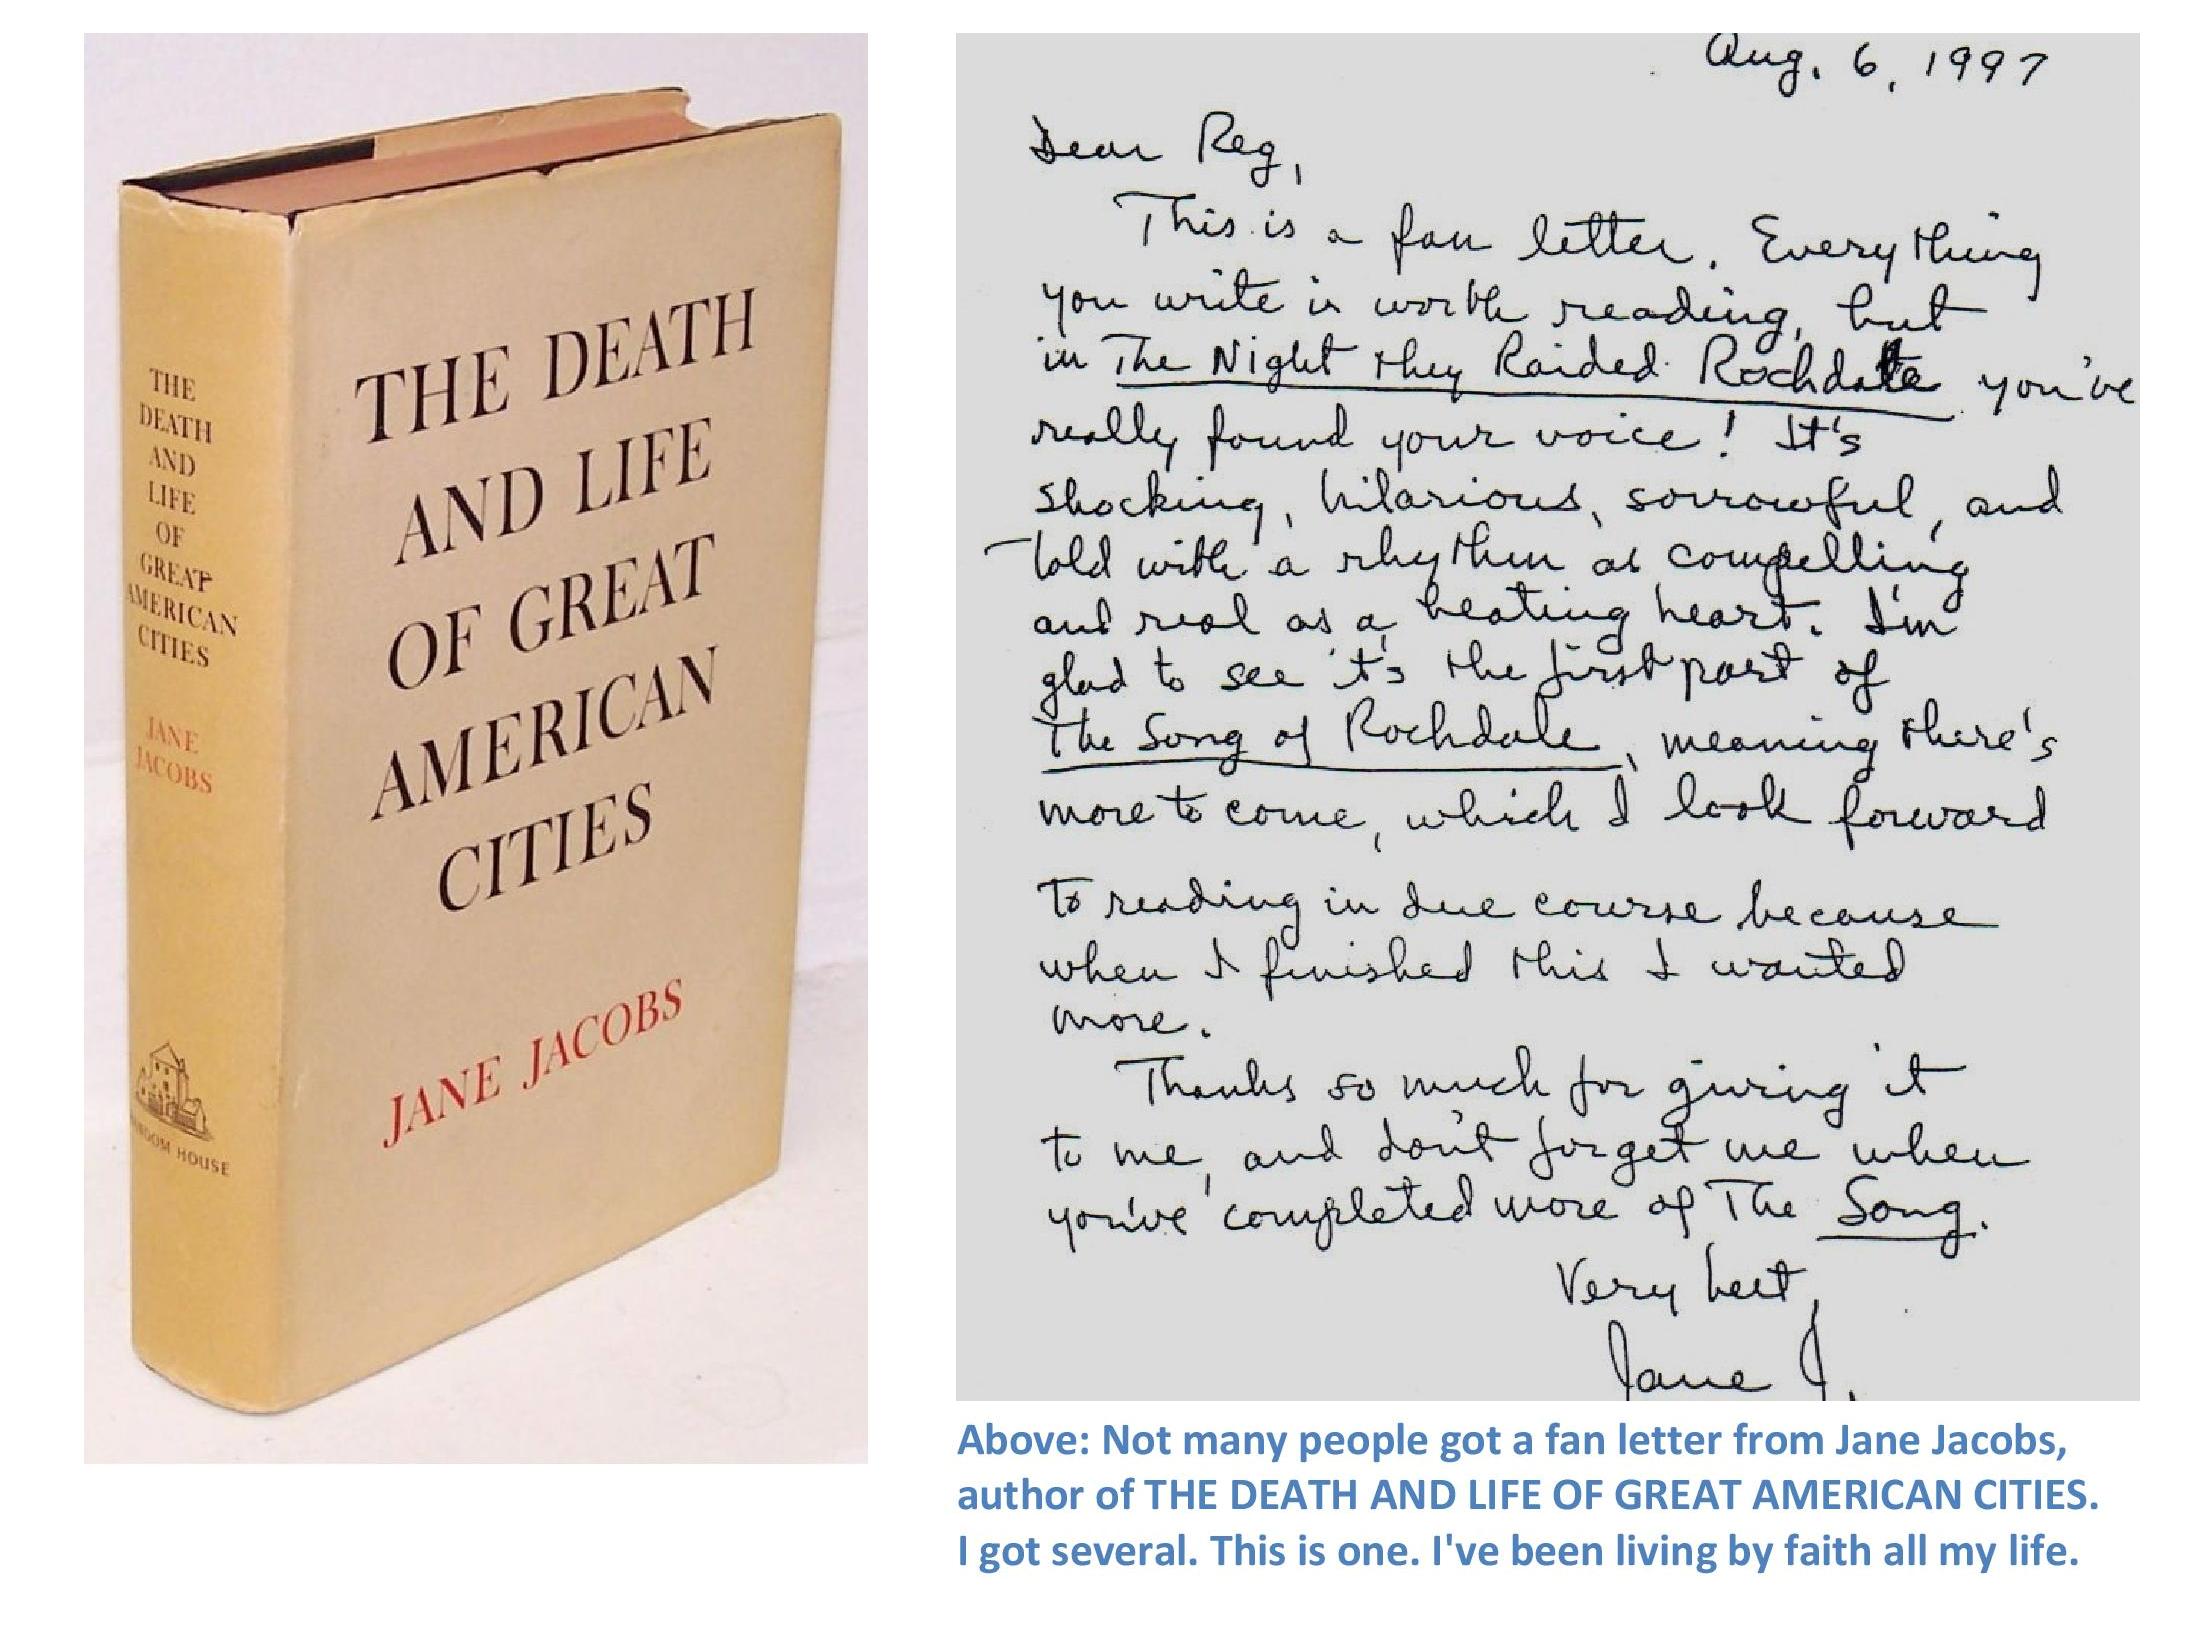 THE
DEATH
AND
LIFE
OF
GREAT
AMERICAN
CITIES
JANE
JACOBS
RANDOM HOUSE
THE DEATH
AND LIFE
OF GREAT
AMERICAN
CITIES
JANE JACOBS
Aug. 6, 1997
Dear Reg,
This is a fan letter. Everything
you write is worth reading, but
in The Night they Raided Rochdale you've
really found your voice! It's
shocking, hilarious, sorrowful, and
told with a rhythm as compelling
and real as a beating heart. I'm
glad to see it's the first part of
The Song of Rochdale, meaning there's
more to come, which I look forward
to reading in due course because
when I finished this I wanted
more.
Thanks so much for giving it
to me, and don't forget me when
you've completed more of The Song.
Very best,
Jane J.
Above: Not many people got a fan letter from Jane Jacobs,
author of THE DEATH AND LIFE OF GREAT AMERICAN CITIES.
I got several. This is one. I've been living by faith all my life.